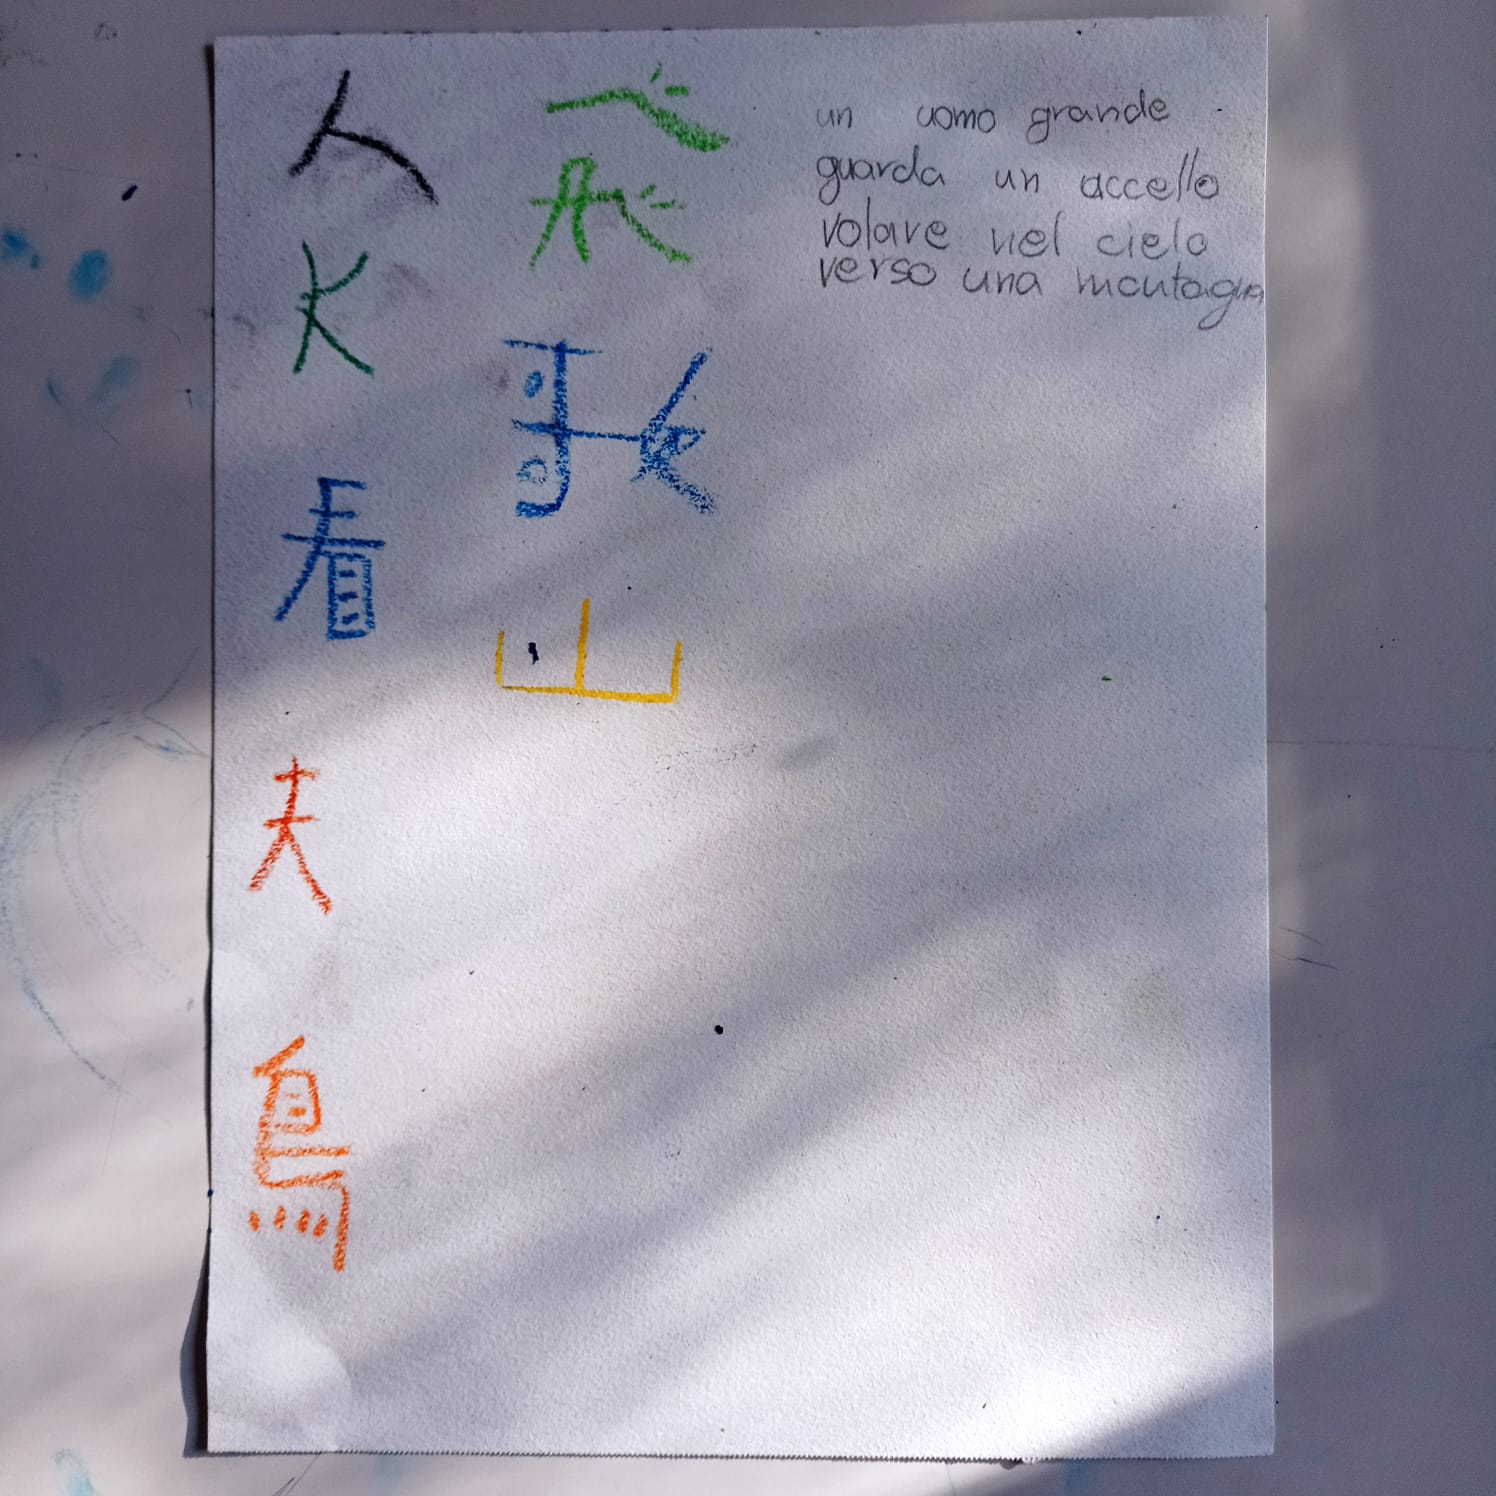 人
看
夫
鳥
飛
歌
山
un uomo grande
guarda un accello
volare nel cielo
verso una montagna